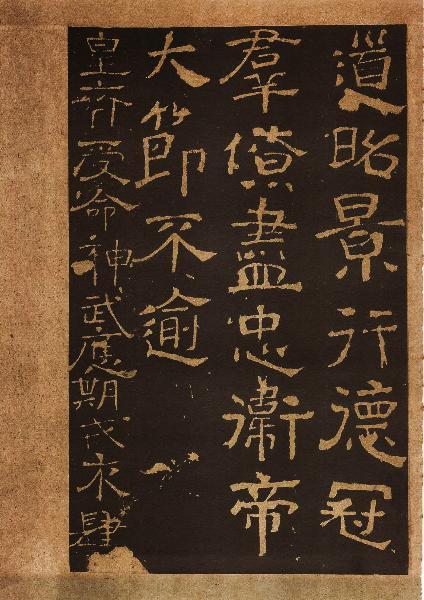 道昭景行德冠
羣僚盡忠衛帝
大節不逾
皇受命神武應期戎衣肆